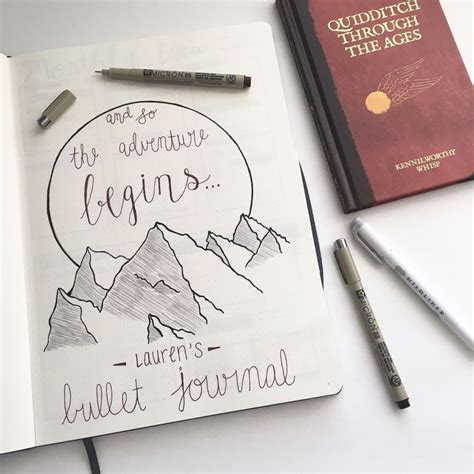 and so
the adventure
begins...
- LAUREN'S -
bullet journal
MICRON
QUIDDITCH
THROUGH
THE AGES
KENNILWORTHY
WHISP
MICRON
MILDLINER